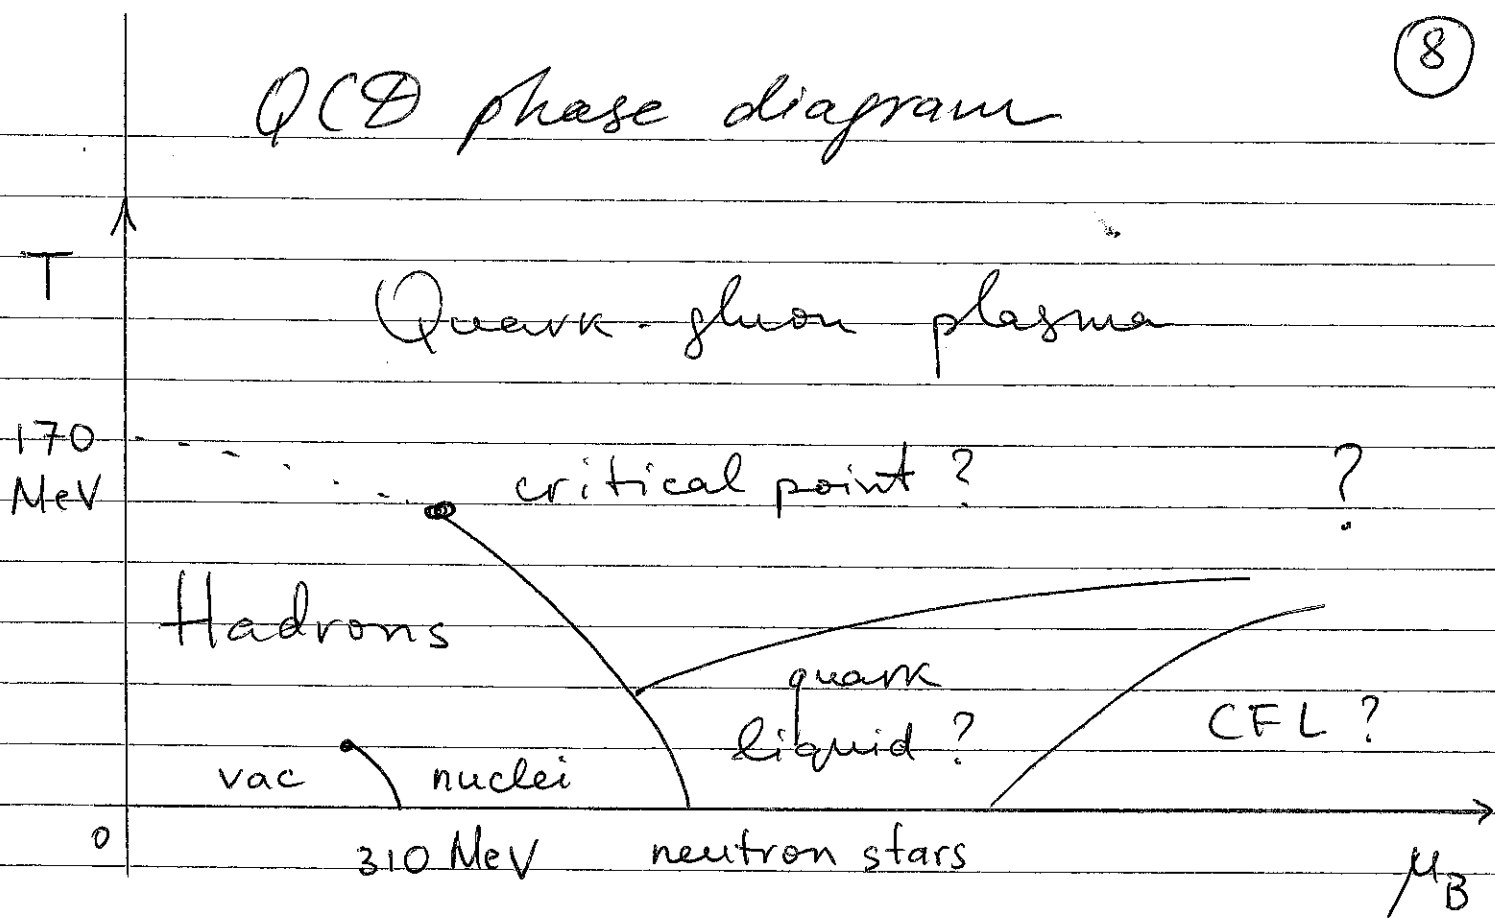 8
QCD phase diagram
T
Quark-gluon plasma
170
MeV
critical point ?
?
Hadrons
quark
liquid ?
CFL ?
vac
nuclei
0
310 MeV
neutron stars
μB